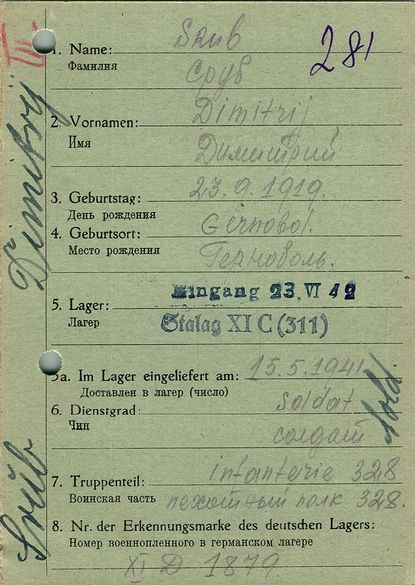 III
281
Srub
1. Name:
Фамилия
Сруб
Dimitrij
2. Vornamen:
Имя
Димитрий
3. Geburtstag: 23.9.1919.
День рождения
4. Geburtsort: Gernovol.
Место рождения
Герноволь.
Eingang 23. VI 42
5. Lager:
Лагер
Stalag XI C (311)
5a. Im Lager eingeliefert am: 15.5.1941
Доставлен в лагер (число)
6. Dienstgrad: Soldat
Чин
солдат
Sold
7. Truppenteil: infanterie 328
Воинская часть пехотный полк 328.
8. Nr. der Erkennungsmarke des deutschen Lagers:
Номер военнопленного в германском лагере
XI D 1879.
Srub Dimitry